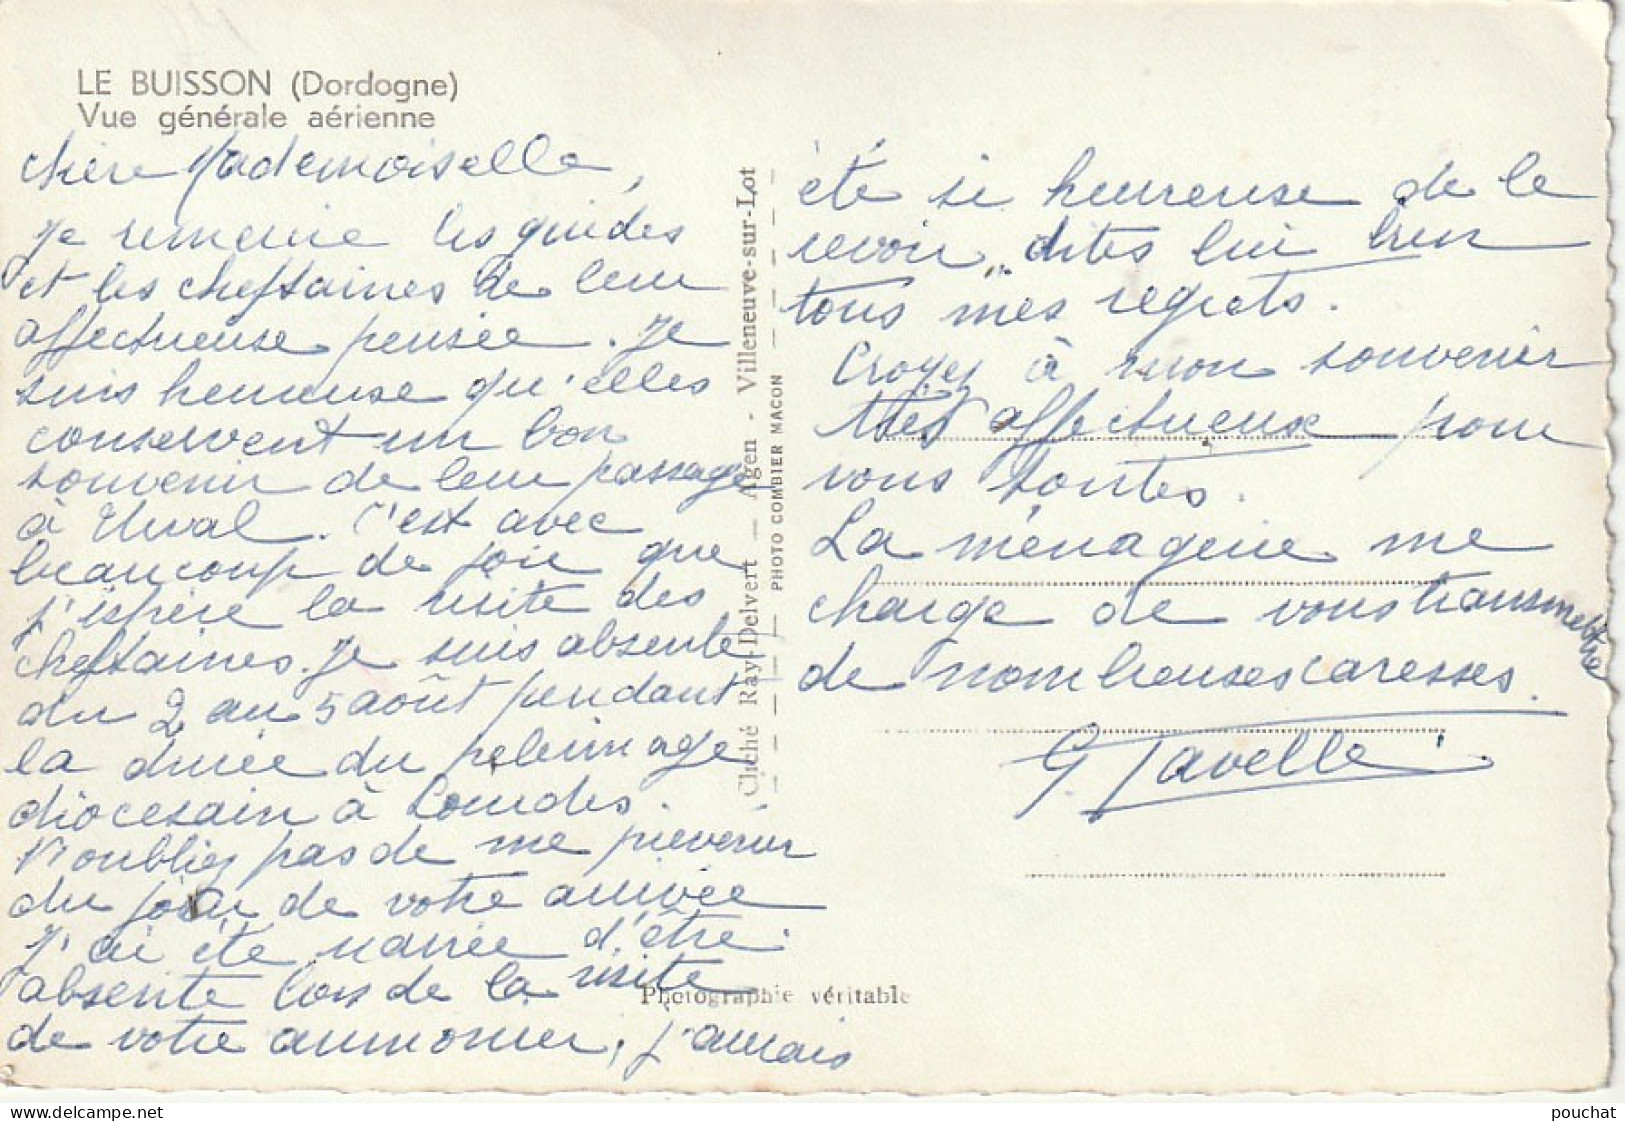 LE BUISSON (Dordogne)
Vue générale aérienne
chère Mademoiselle,
Je remercie les guides
et les cheftaines de leur
affectueuse pensée. Je
suis heureuse qu'elles
conservent un bon
souvenir de leur passage
à . C'est avec
beaucoup de joie que
j'espère la visite des
cheftaines. Je suis absente
du 2 au 5 août pendant
la durée du pelerinage
diocesain à Lourdes.
N'oubliez pas de me prévenir
du jour de votre arrivée
J'ai été navrée d'être
absente lors de la visite
de votre aumonier, j'aurais
été si heureuse de le
revoir, dites lui bien
tous mes regrets.
Croyez à mon souvenir
très affectueux pour
vous toutes.
La ménagerie me
charge de vous transmettre
de nombreuses caresses.
G. Tavelle
Cliché Ray-Delvert — Agen - Villeneuve-sur-Lot
PHOTO COMBIER MACON
Photographie véritable
https://www.delcampe.net
pouchat